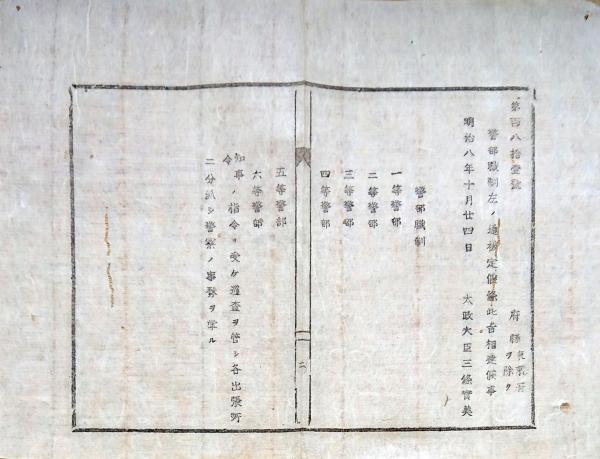 第百八拾壹號
府縣 東京府ヲ除ク
警部職制左ノ通被定候條此旨相達候事
明治八年十月廿四日 太政大臣三條實美
警部職制
一等警部
二等警部
三等警部
四等警部
五等警部
六等警部
知事令ノ指令ヲ受ケ邏査ヲ管シ各出張所
ニ分派シ警察ノ事務ヲ掌ル
二